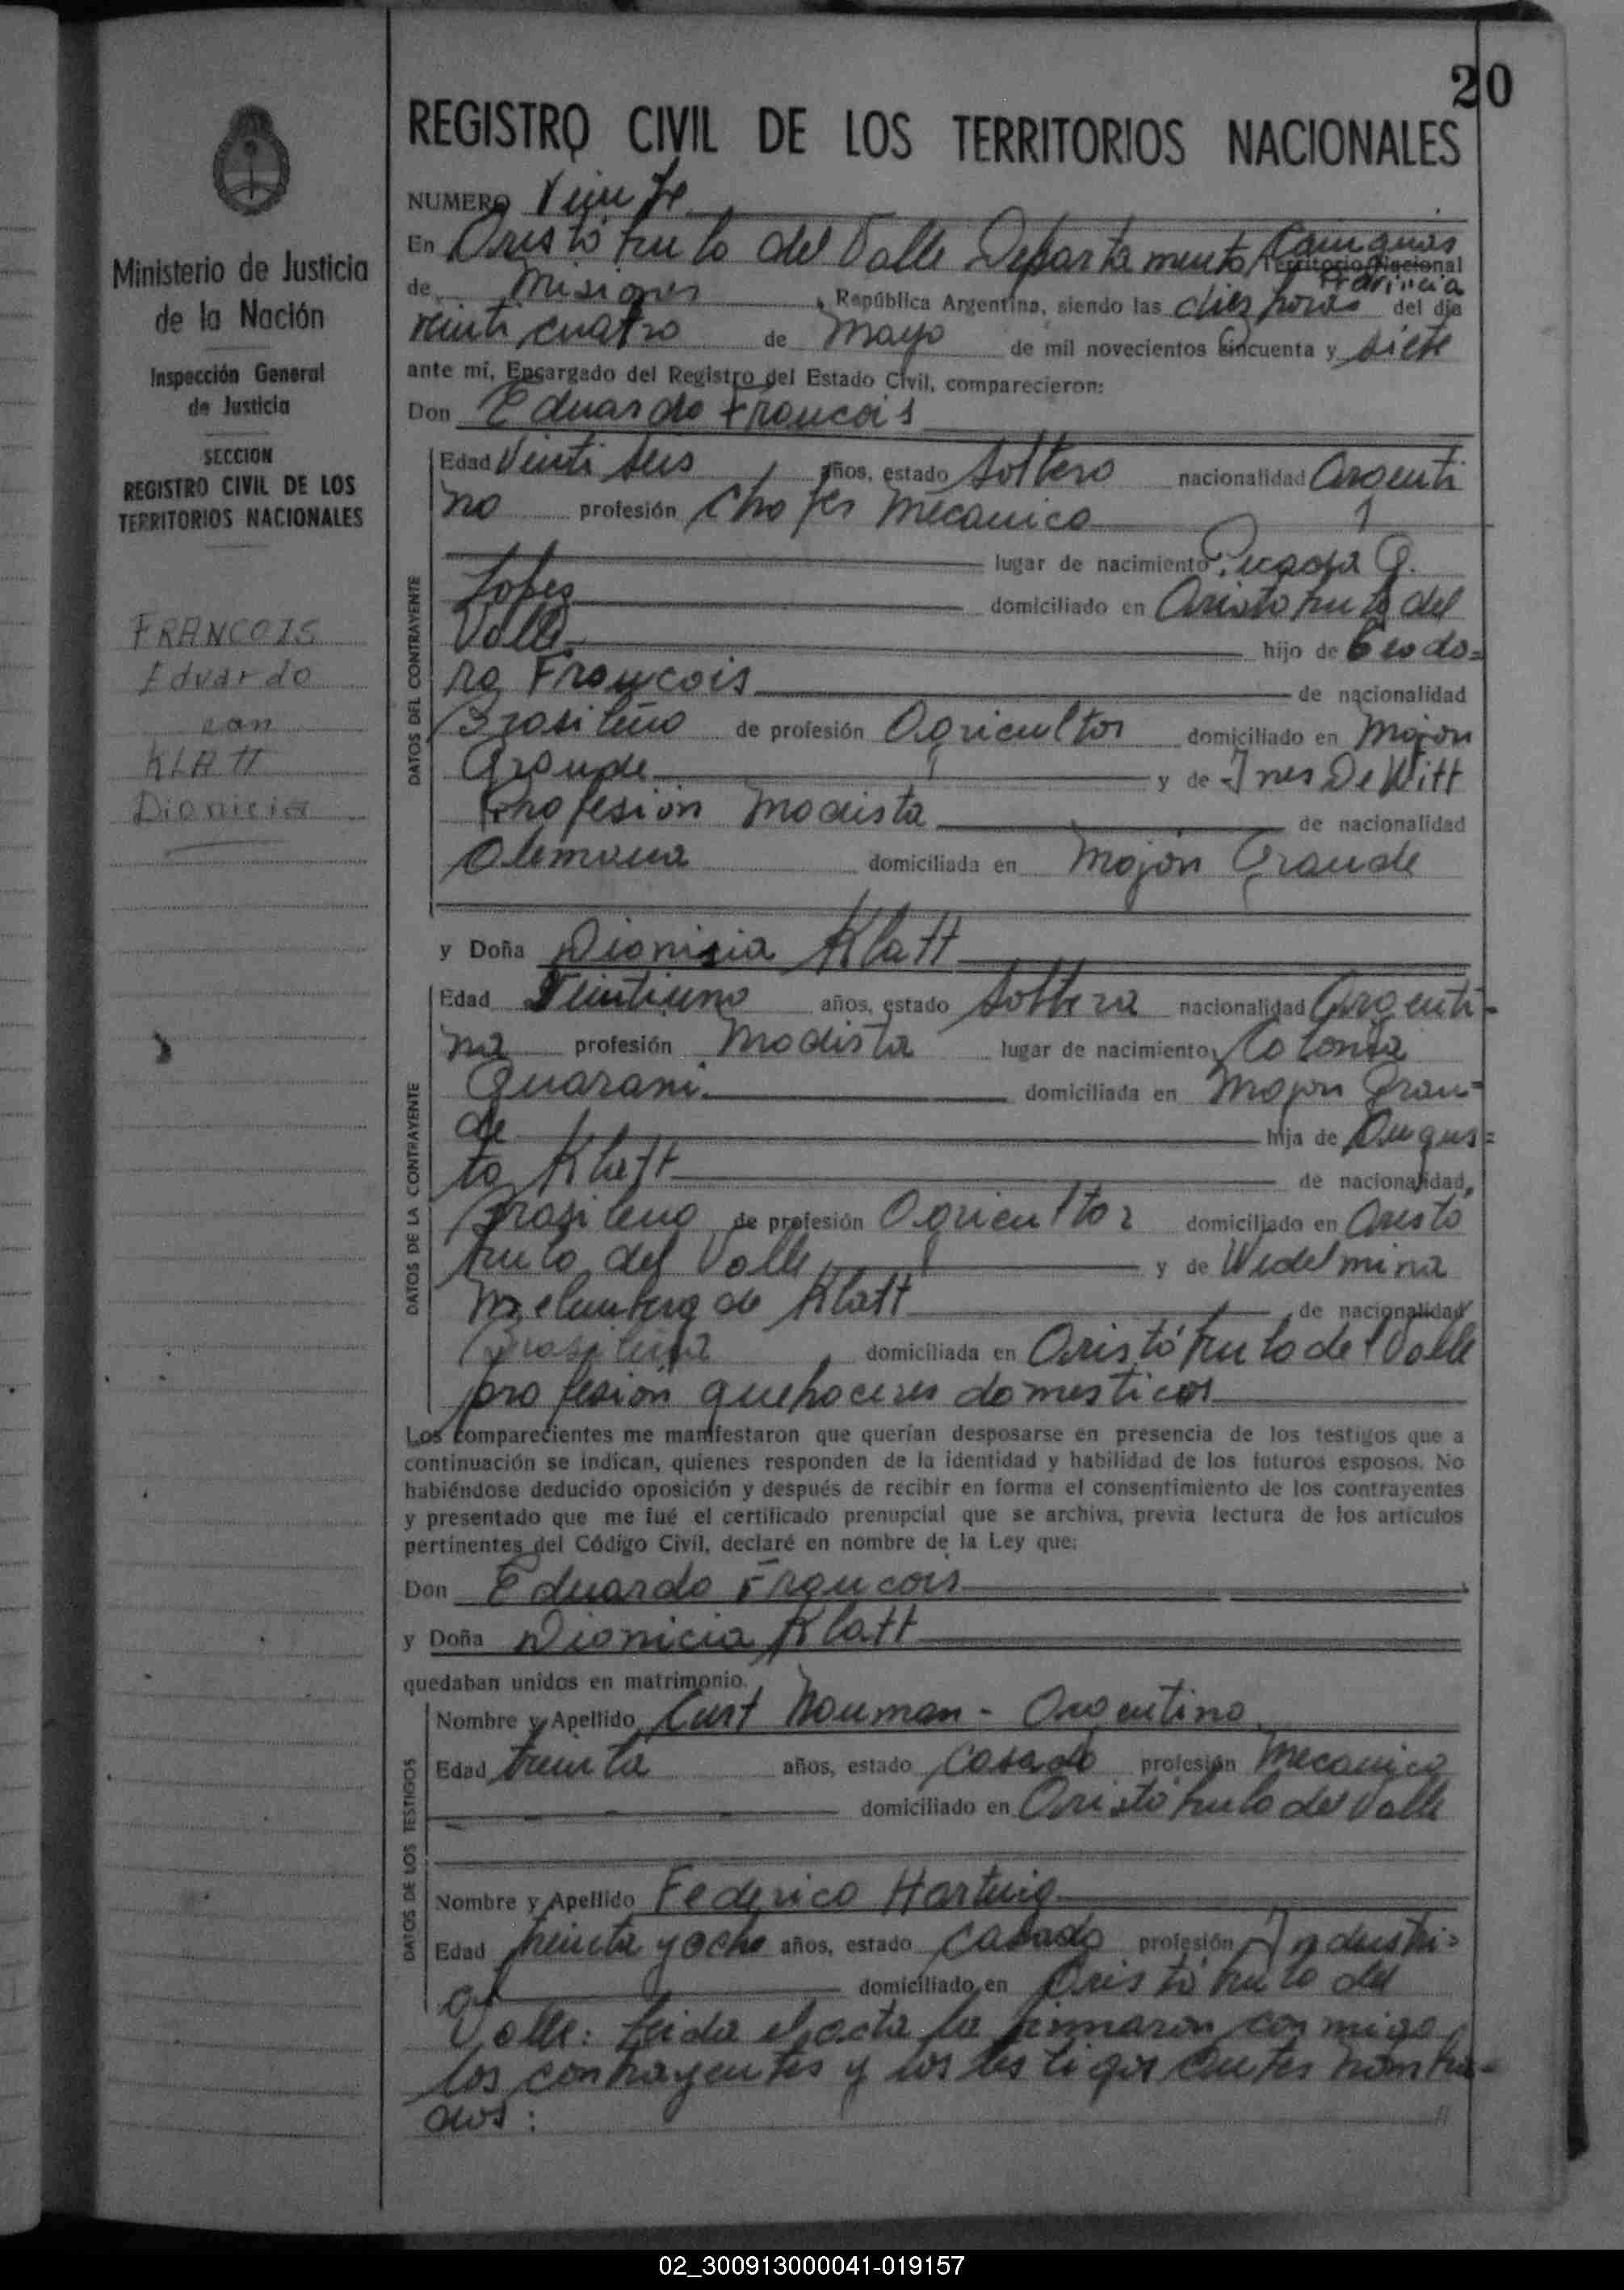 20
REGISTRO CIVIL DE LOS TERRITORIOS NACIONALES
Ministerio de Justicia
de la Nación
Inspección General
de Justicia
SECCION
REGISTRO CIVIL DE LOS
TERRITORIOS NACIONALES
FRANCOIS
Eduardo
con
KLATT
Dionicia
NUMERO Veinte
En Aristóbulo del Valle Departamento Cainguas Territorio Nacional
Provincia
de Misiones, República Argentina, siendo las diez horas del día
veinti cuatro de Mayo de mil novecientos cincuenta y siete
ante mí, Encargado del Registro del Estado Civil, comparecieron:
Don Eduardo Francois
DATOS DEL CONTRAYENTE
Edad Veinti seis años, estado Soltero nacionalidad Argenti
no profesión Chofer Mecanico
lugar de nacimiento Picada G.
Lopez domiciliado en Aristobulo del
Valle hijo de Teodo=
ro Francois de nacionalidad
Brasileño de profesión Agricultor domiciliado en Mojon
Grande y de Ines De Witt
Profesión Modista de nacionalidad
Alemana domiciliada en Mojón Grande
y Doña Dionisia Klatt
DATOS DE LA CONTRAYENTE
Edad Veintiuno años, estado Soltera nacionalidad Argenti-
na profesión Modista lugar de nacimiento Colonia
Guarani domiciliada en Mojon Gran=
de hija de Augus=
to Klatt de nacionalidad
Brasileno de profesión Agricultor domiciliado en Aristo
bulo del Valle y de Widelmina
de Klatt de nacionalidad
Brasileña domiciliada en Aristóbulo del Valle
profesión quehaceres domesticos
Los comparecientes me manifestaron que querían desposarse en presencia de los testigos que a
continuación se indican, quienes responden de la identidad y habilidad de los futuros esposos. No
habiéndose deducido oposición y después de recibir en forma el consentimiento de los contrayentes
y presentado que me fué el certificado prenupcial que se archiva, previa lectura de los artículos
pertinentes del Código Civil, declaré en nombre de la Ley que:
Don Eduardo Francois
y Doña Dionicia Klatt
quedaban unidos en matrimonio.
DATOS DE LOS TESTIGOS
Nombre y Apellido Curt Nauman - Argentino
Edad treinta años, estado Casado profesión Mecanico
domiciliado en Aristóbulo del Valle
Nombre y Apellido Federico Hartwig
Edad treinta y ocho años, estado Casado profesión Industri=
al domiciliado en Aristóbulo del
Valle: Leida el acta la firmaron conmigo
los contrayentes y los testigos antes nombra=
dos:
02_300913000041-019157